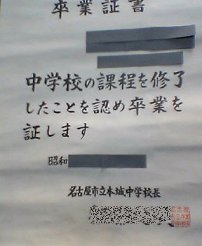 卒業証書
中学校の課程を修了
したことを認め卒業を
証します
昭和
名古屋市立本城中学校長